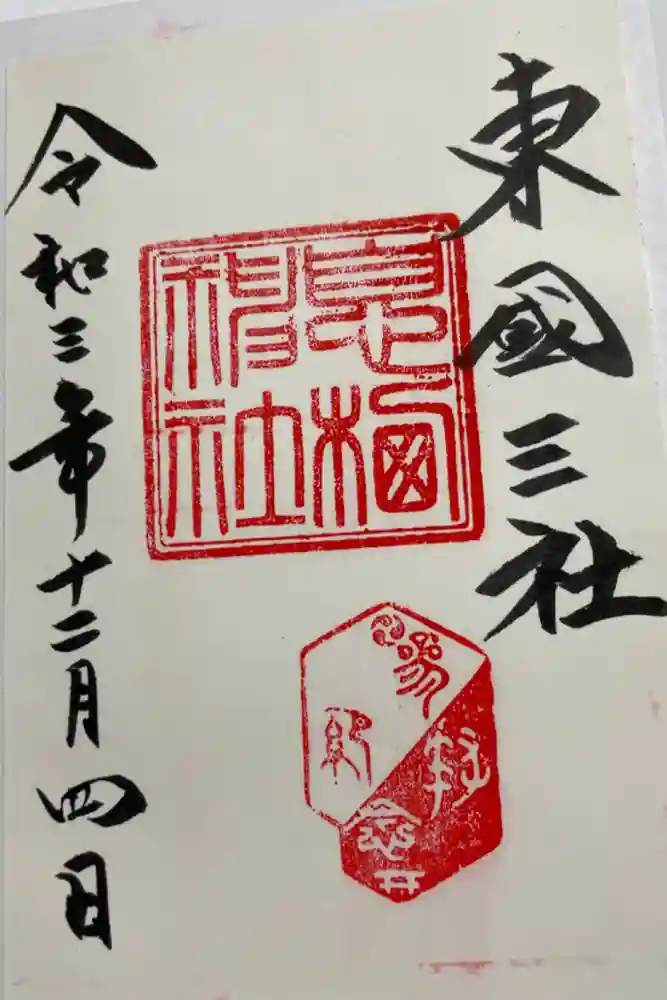 東國三社
息栖
神社
令和三年十二月四日